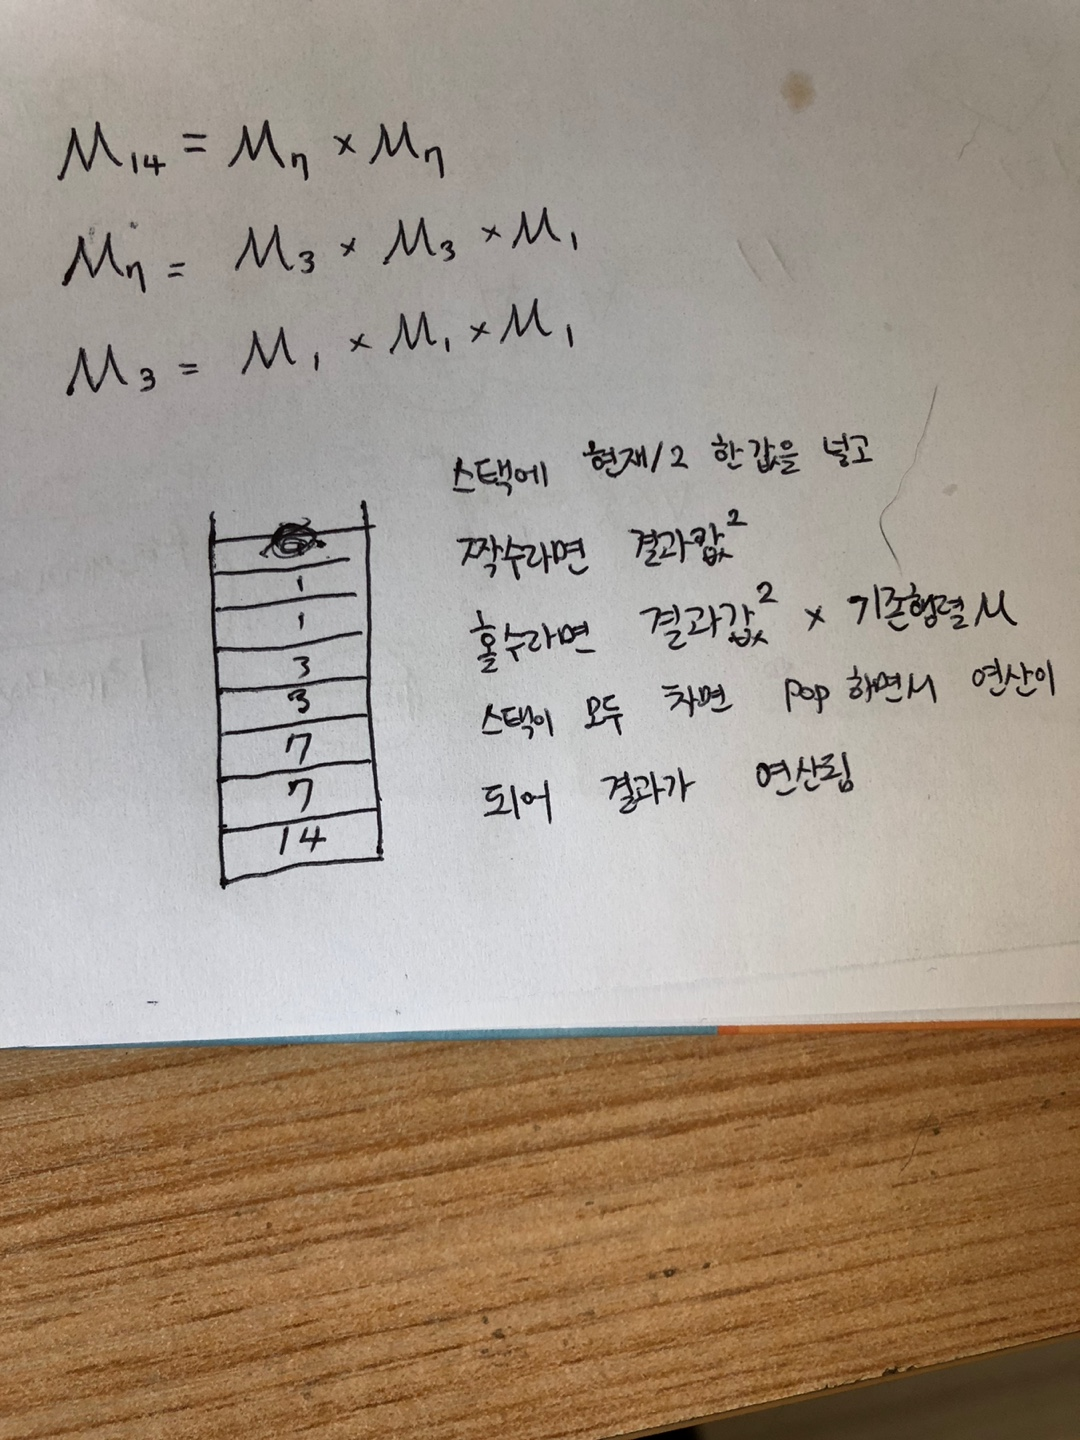 M₁₄ = M₇ × M₇
M₇ = M₃ × M₃ × M₁
M₃ = M₁ × M₁ × M₁
스택에 현재/2 한 값을 넣고
짝수라면 결과값²
홀수라면 결과값² × 기존행렬 M
스택이 모두 차면 pop 하면서 연산이
되어 결과가 연산됨
1
1
3
3
7
7
14